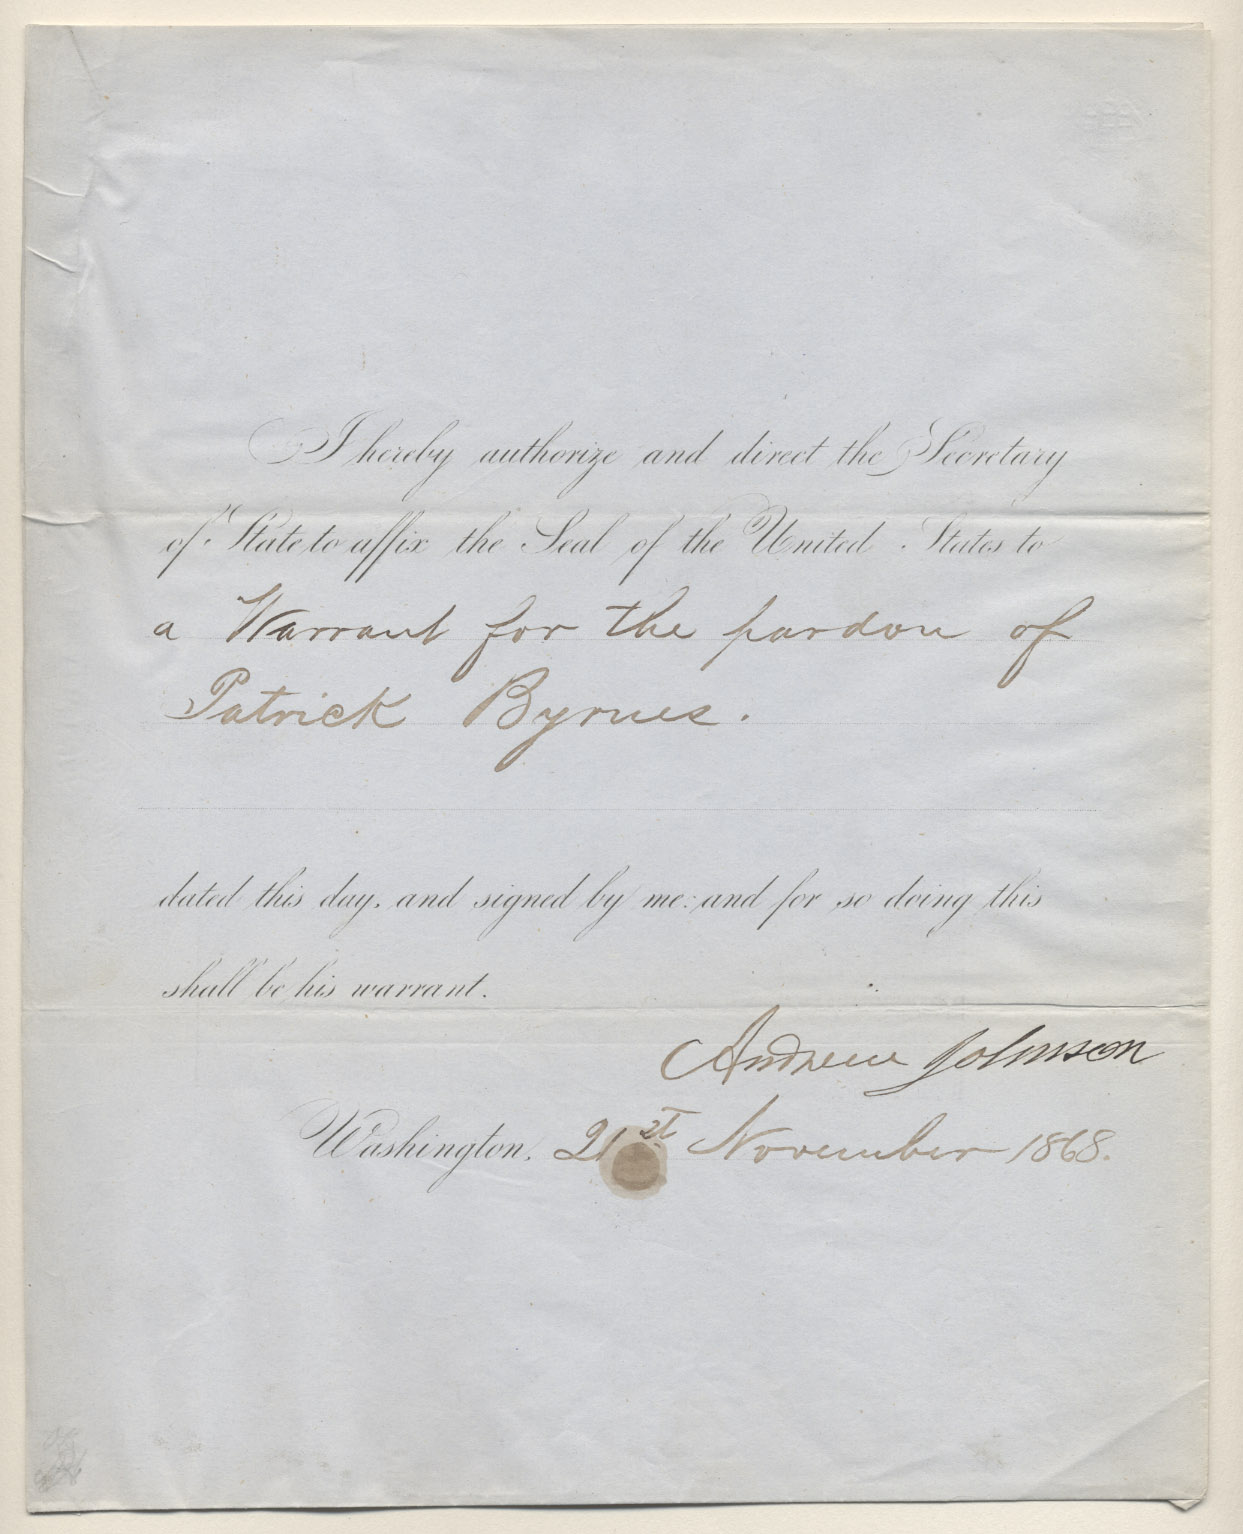 I hereby authorize and direct the Secretary
of State to affix the Seal of the United States to
a Warrant for the pardon of
Patrick Byrnes.
dated this day, and signed by me: and for so doing this
shall be his warrant.
Andrew Johnson
Washington, 21st November 1868.